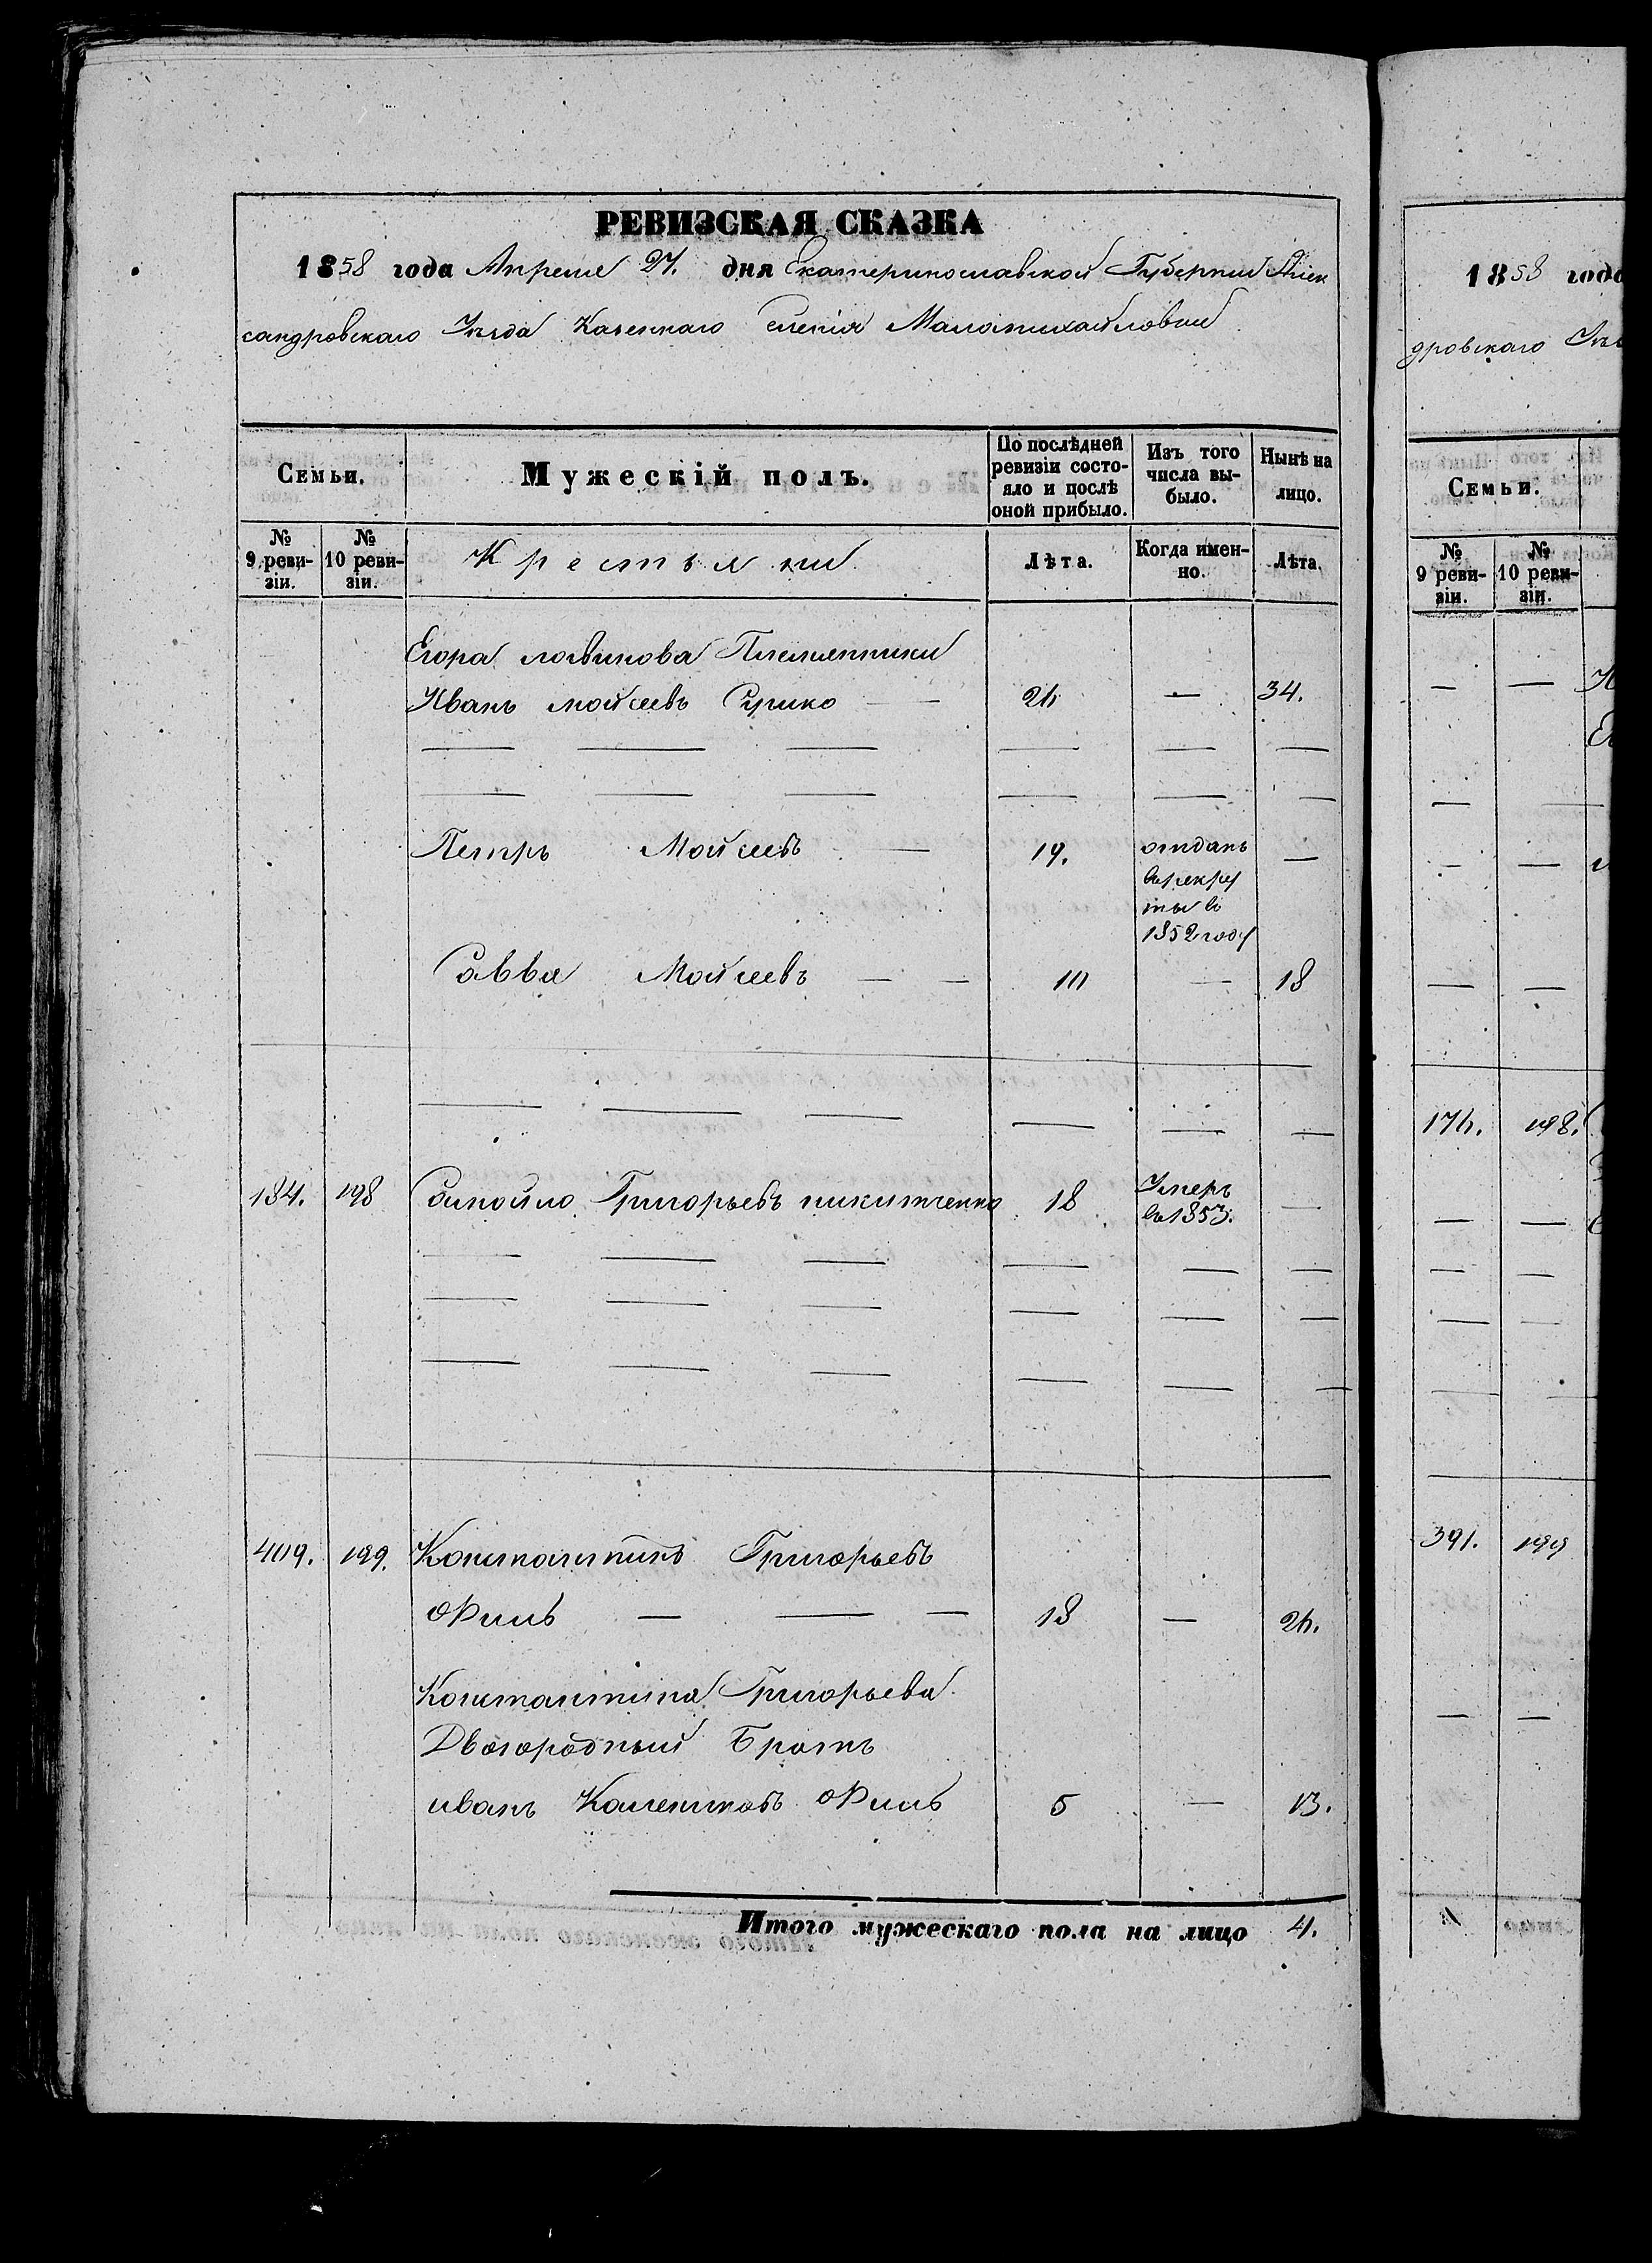 РЕВИЗСКАЯ СКАЗКА
1858 года Апреля 27. дня Екатеринославской Губернии Алек
сандровскаго Уѣзда Казеннаго Селенія Маломихайловки
Семьи.
Мужескій полъ.
По послѣдней ревизіи состо-
яло и послѣ оной прибыло.
Изъ того числа вы-
было.
Нынѣ на лицо.
№ 9 реви-
зіи.
№ 10 реви-
зіи.
Крестьяне
Лѣта.
Когда имен-
но.
Лѣта.
Егора Логвинова Племянники
Иванъ Мойсеевъ — 26 — 34.
Петръ Мойсеевъ — 19. отданъ —
врекру
ты в
1852 году
Савва Мойсеевъ — — 10 — 18
184. 198 Самойло Григорьевъ никитченко 18 Умеръ —
в1853.
409. 199. Константинъ Григорьевъ
— — — 18 — 26.
Константина Григорьева
Двоюродный Братъ
иванъ Калениковъ 5 — 13.
Итого мужескаго пола на лицо 4.
1858 года
дровскаго Уѣз
Семьи.
№ 9 реви-
зіи.
№ 10 реви-
зіи.
176. 198.
391. 199